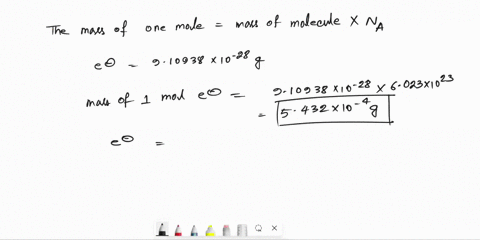 The mass of one mole = mass of molecule × N_A
e⊖ = 9.10938 × 10⁻²⁸ g
mass of 1 mol e⊖ = 9.10938 × 10⁻²⁸ × 6.023 × 10²³
= 5.432 × 10⁻⁴ g
e⊖ =